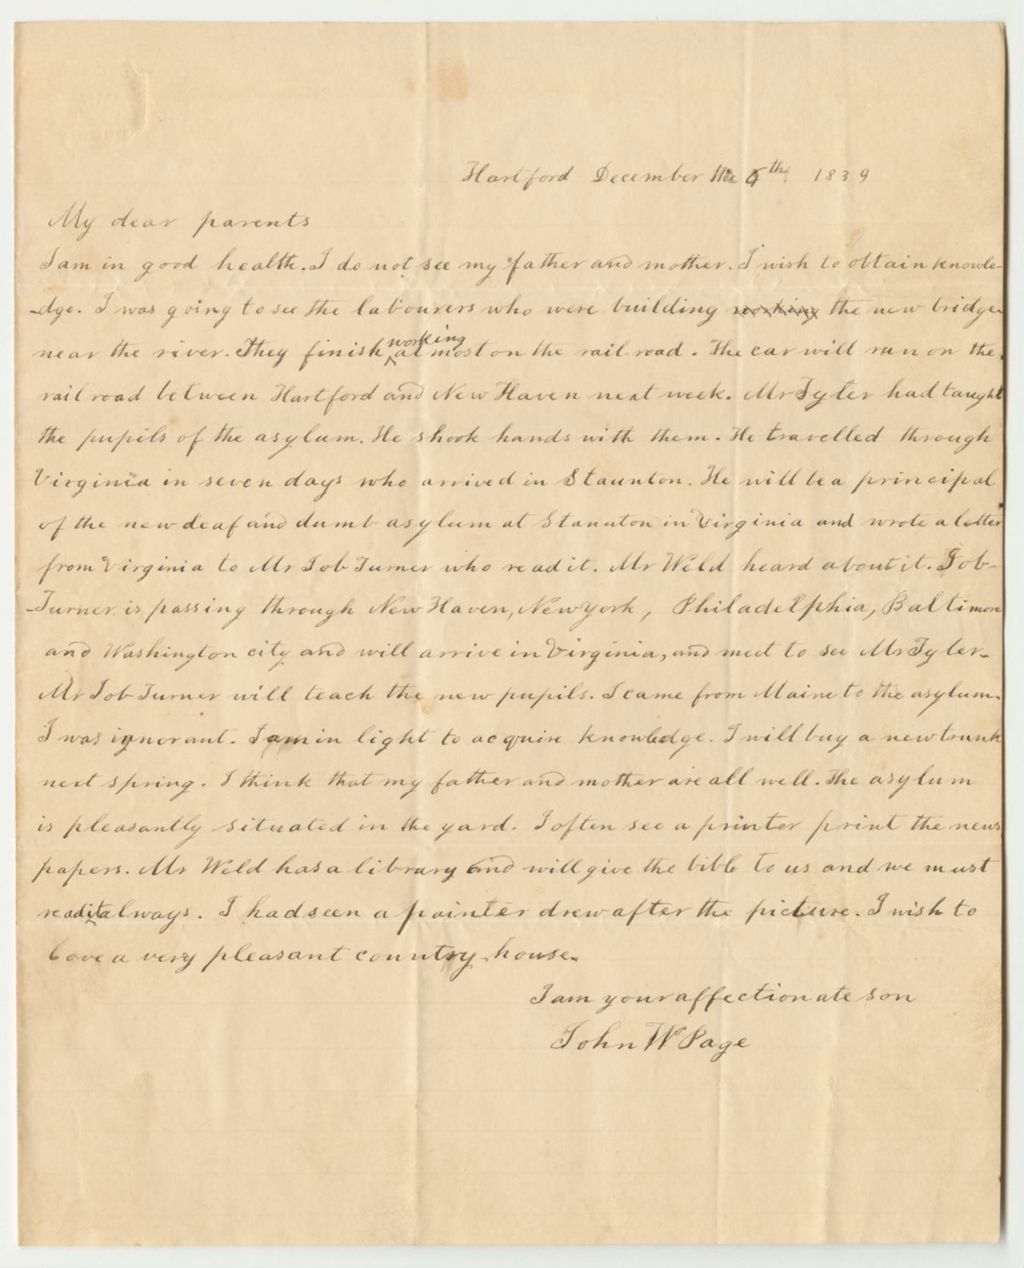 Hartford December the 5th 1839
My dear parents
I am in good health. I do not see my father and mother. I wish to obtain knowle-
-dge. I was going to see the labourers who were building working the new bridge
near the river. They finish working almost on the rail road. The car will run on the
rail road between Hartford and New Haven next week. Mr Tyler had taught
the pupils of the asylum. He shook hands with them. He travelled through
Virginia in seven days who arrived in Staunton. He will be a principal
of the new deaf and dumb asylum at Stanuton in Virginia and wrote a letter
from Virginia to Mr Job Turner who read it. Mr Weld heard about it. Job
-Turner is passing through New Haven, New york, Philadelphia, Baltimore
and Washington city and will arrive in Virginia, and meet to see Mr Tyler.
Mr Job Turner will teach the new pupils. I came from Maine to the asylum.
I was ignorant. I am in light to acquire knowledge. I will buy a new trunk
next spring. I think that my father and mother are all well. The asylum
is pleasantly situated in the yard. I often see a printer print the news
papers. Mr Weld has a library and will give the bible to us and we must
read it always. I had seen a painter drew after the picture. I wish to
a very pleasant country house.
I am your affectionate son
John W Page